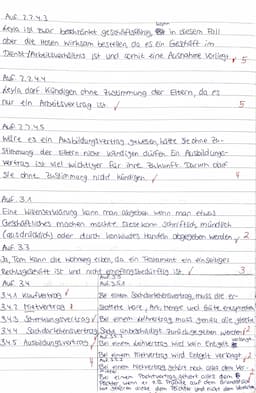 Auf. 2.7.4.3
Leyla ist zwar beschränkt geschäftsfähig, kann in diesem Fall
aber die Hosen wirksam bestellen, da es ein Geschäft im
Dienst-/Arbeitsverhältnis ist und somit eine Ausnahme vorliegt. 5
Auf. 2.7.4.4
Leyla darf kündigen ohne Zustimmung der Eltern, da es
nur ein Arbeitsvertrag ist. 5
Auf. 2.7.4.5
Wäre es ein Ausbildungsvertrag gewesen, hätte sie ohne Zu-
stimmung der Eltern nicht kündigen dürfen. Ein Ausbildungs-
vertrag ist viel wichtiger für ihre Zukunft. Darum darf
sie ohne Zustimmung nicht kündigen. 4
Auf. 3.1
Eine Willenserklärung kann man abgeben wenn man etwas
Geschäftliches machen möchte. Diese kann schriftlich, mündlich
(ausdrücklich) oder durch konkludentes Handeln abgegeben werden. 2
Auf 3.3
Ja, Tom kann die Wohnung erben, da ein Testament ein einseitiges
Rechtsgeschäft ist und nicht empfangsbedürftig ist. 3
Auf 3.4
3.4.1 Kaufvertrag
3.4.2 Mietvertrag
3.4.3 Schenkungsvertrag
3.4.4 Sachdarlehensvertrag
3.4.5 Ausbildungsvertrag
4
Auf 3.5
Auf 3.5.1
Bei einem Sachdarlehensvertrag, muss die er-
stattete Ware, Art, Menge und Güte entsprechen.
Bei einem Leihvertrag muss genau die gleiche
Sache unbeschädigt zurückgegeben werden. 2
Bei einem Leihvertrag wird kein Entgelt verlangt
Bei einem Mietvertrag wird Entgelt verlangt. 2
Bei einem Mietvertrag
Bei einem Pachtvertrag